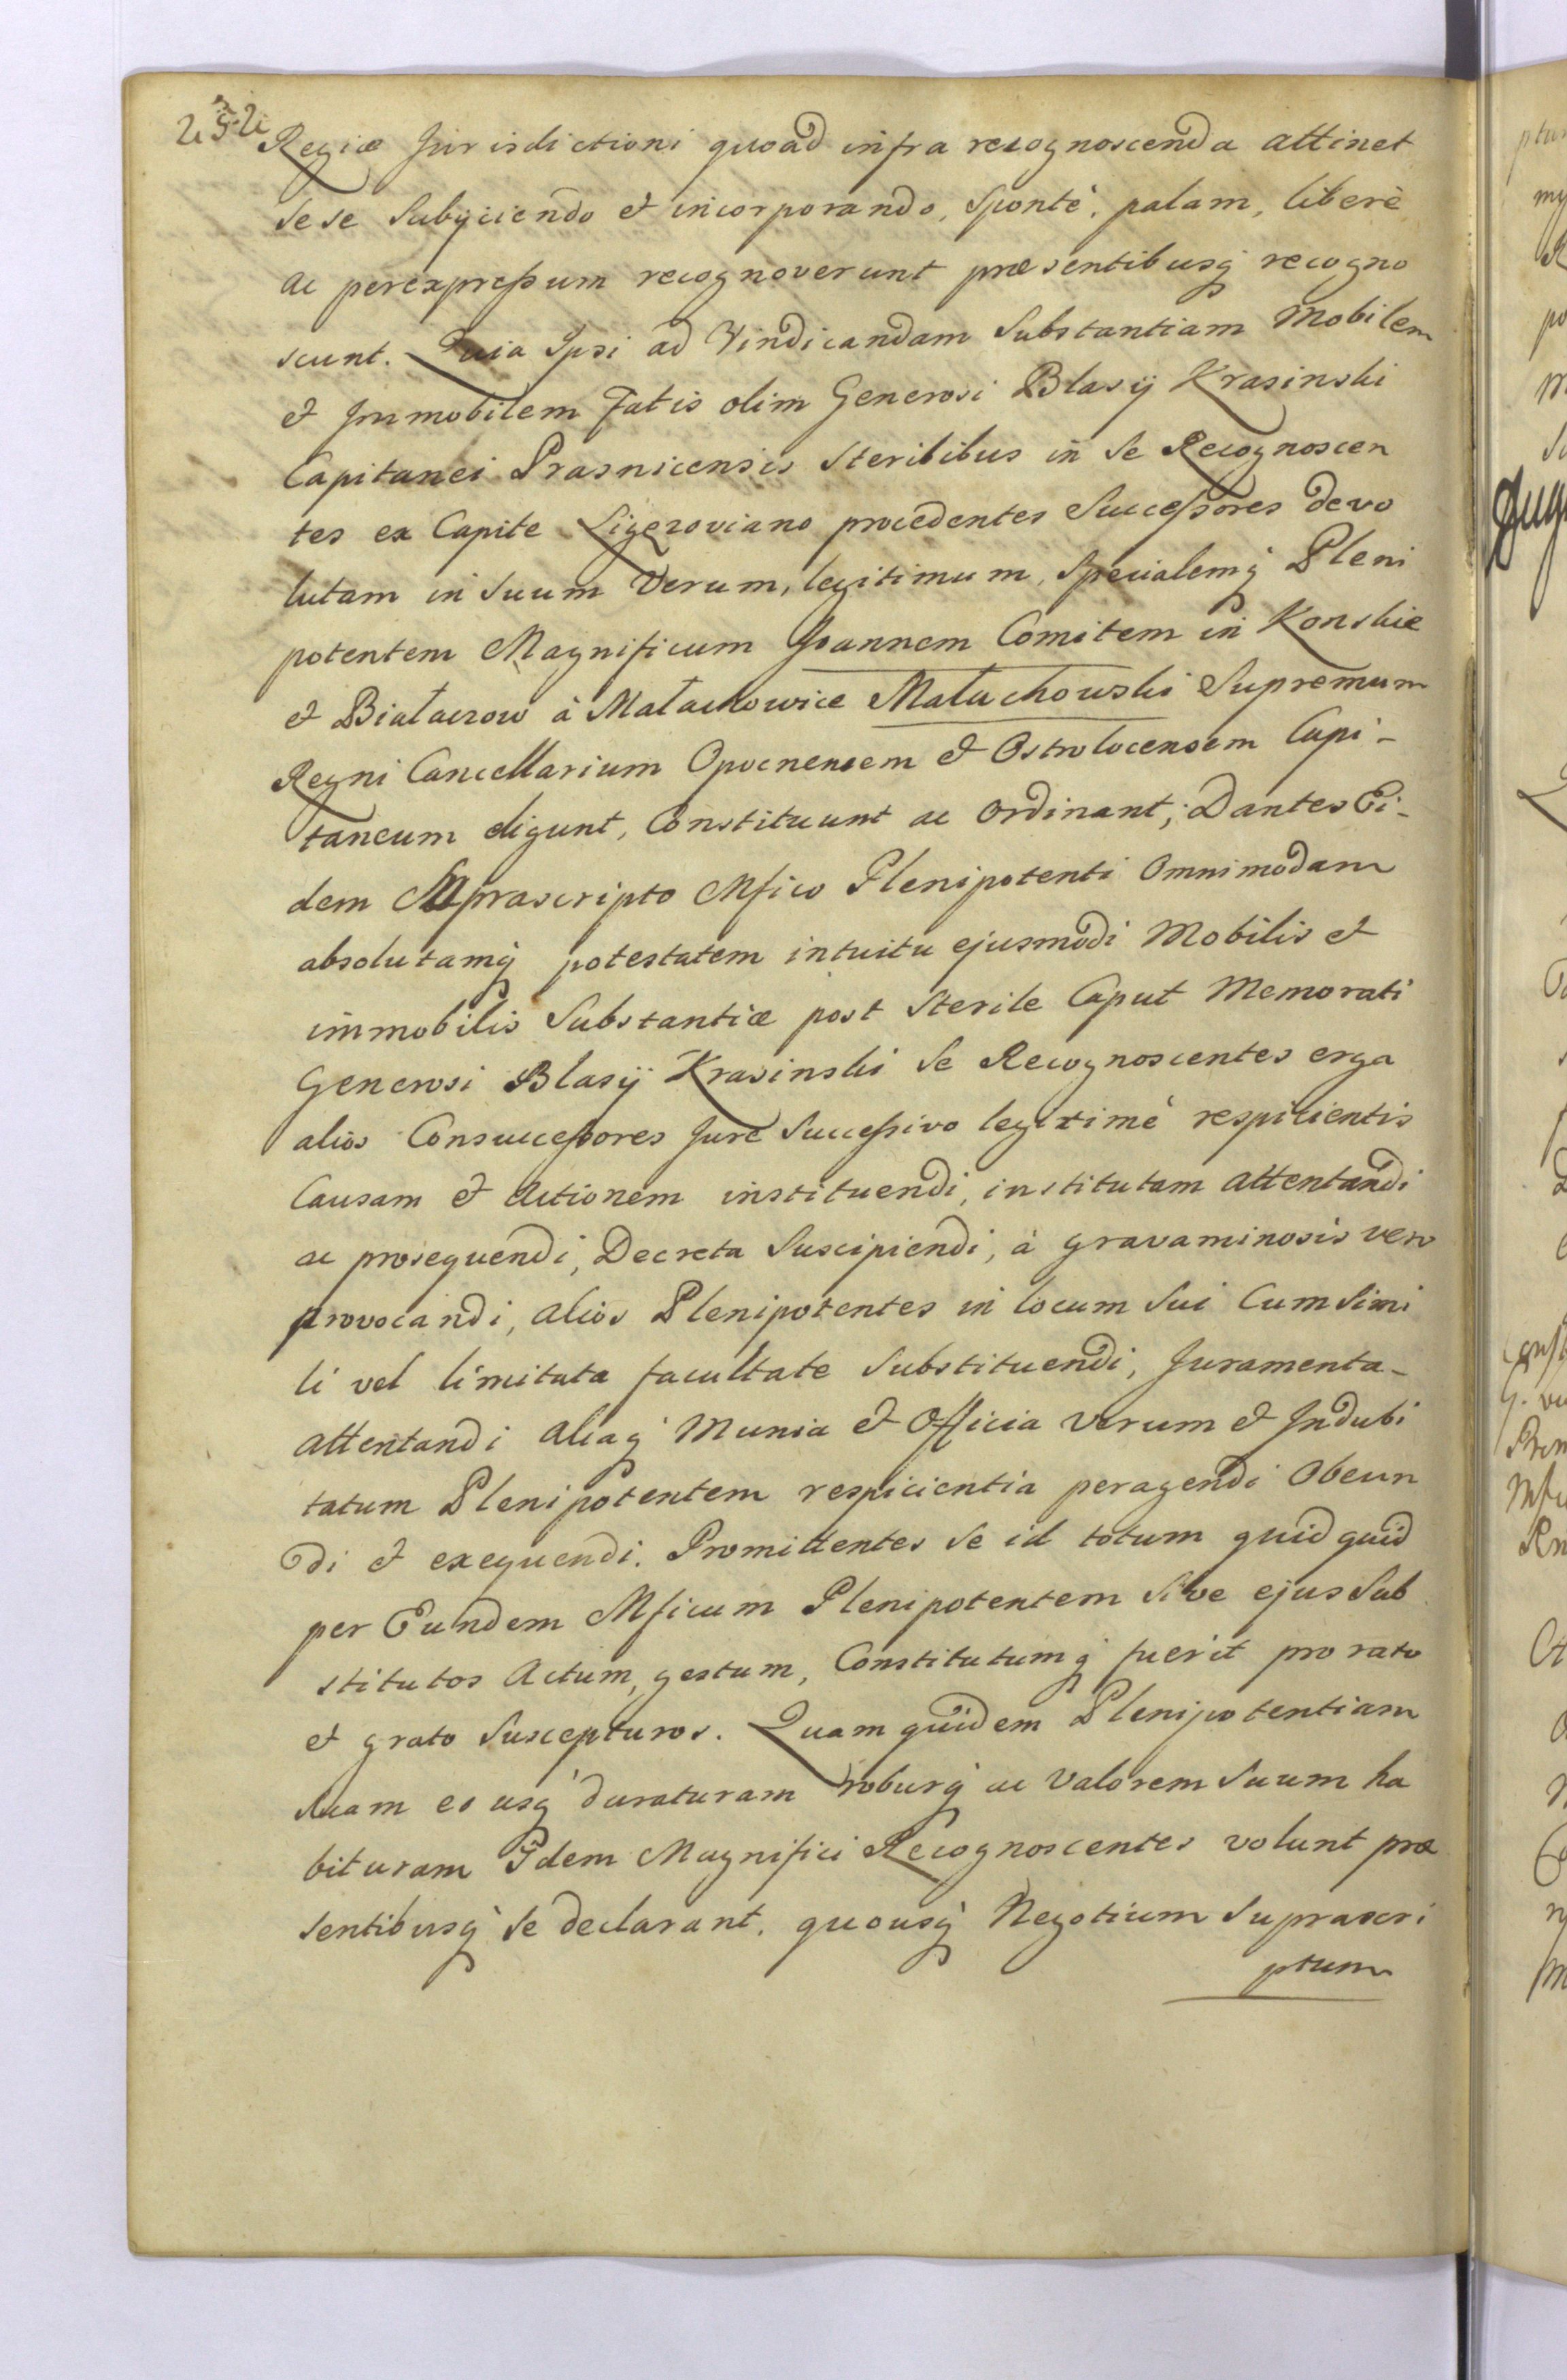 252
Regiæ Jurisdictioni quoad infra recognoscenda attinet
sese Subijciendo et incorporando, Spontè, palam, liberè
ac perexpreßum recognoverunt præsentibusq recogno
scunt. Quia Ipsi ad Vindicandam Substantiam Mobilem
et Immobilem Fatis olim Generosi Blasij Krasinski
Capitanei Prasnicensis Sterilibus in Se Recognoscen
tes ex Capite procedentes Succeßores devo
lutam in Suum Verum, legitimum, Specialemq Pleni
potentem Magnificum Joannem Comitem in Konskie
et Białaczow à Małachowice Małachowski Supremum
Regni Cancellarium Opocnensem et Ostrolocensem Capi-
taneum eligunt, Constituunt ac Ordinant; Dantes Ei-
dem Suprascripto Mfico Plenipotenti Omnimodam
absolutamq potestatem intuitu ejusmodi Mobilis et
immobilis Substantiæ post Sterile Caput Memorati
Generosi Blasij Krasinski Se Recognoscentes erga
alios Consucceßores Jure Succeßivo legitimè respicientis
Causam et Actionem instituendi, institutam attentandi
ac prosequendi, Decreta Suscipiendi, à gravaminosis vero
provocandi, alios Plenipotentes in locum Sui Cum Simi
li vel limitata facultate Substituendi, Juramenta-
attentandi aliaq Munia et Officia Verum et Indubi
tatum Plenipotentem respicientia peragendi Obeun
di et exequendi. Promittentes Se id totum quidquid
per Eundem Mficum Plenipotentem Sive ejus Sub
stitutos Actum, gestum, Constitutumq fuerit pro rato
et grato Suscepturos. Quam quidem Plenipotentiam
Suam eo usq duraturam roburq ac Valorem Suum ha
bituram Idem Magnifici Recognoscentes volunt præ
sentibusq Se declarant. quousq Negotium Suprascri
ptum